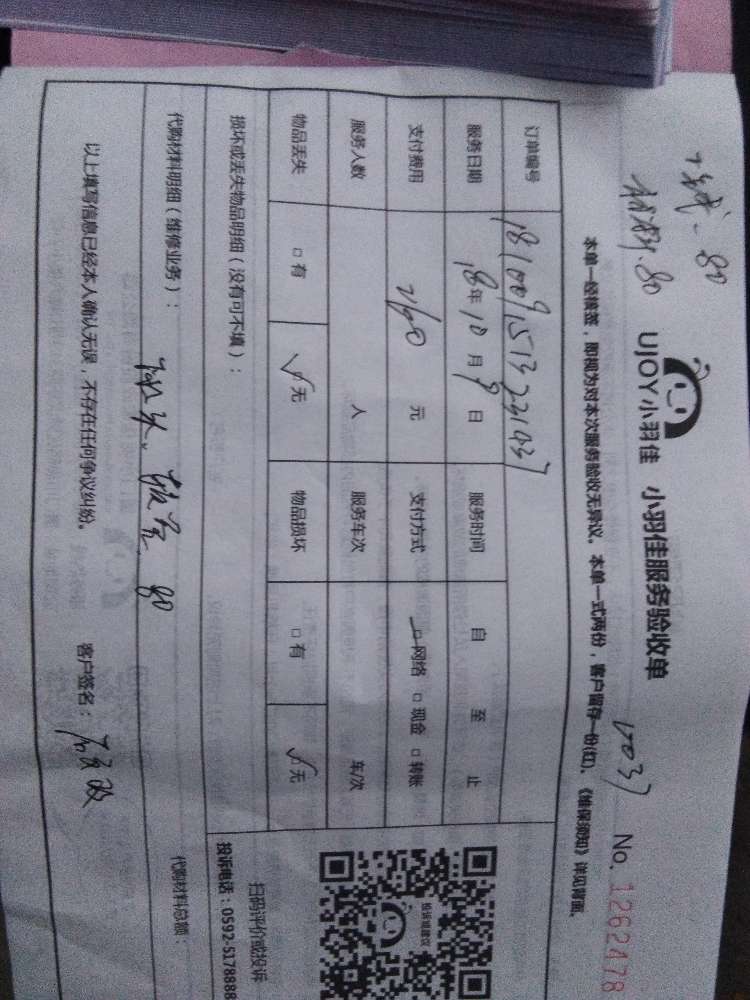 材料.80
UJOY小羽佳 小羽佳服务验收单
No. 1262478
本单一经签签，即视为对本次服务验收无异议。本单一式两份，客户留存一份(红)。《维保须知》详见背面。
订单编号 1810091513231037
服务日期 18年10月9日 服务时间 自 至 止
支付费用 260元 支付方式 □网络 □现金 □转账
服务人数 人 服务车次 车/次
物品丢失 □有 ☑无 物品损坏 □有 ☑无
损坏或丢失物品明细（没有可不填）：
代购材料明细（维修业务）： 80
代购材料总额：
以上填写信息已经本人确认无误，不存在任何争议纠纷。
客户签名：
投诉或建议
扫码评价或投诉
投诉电话：0592-5178888